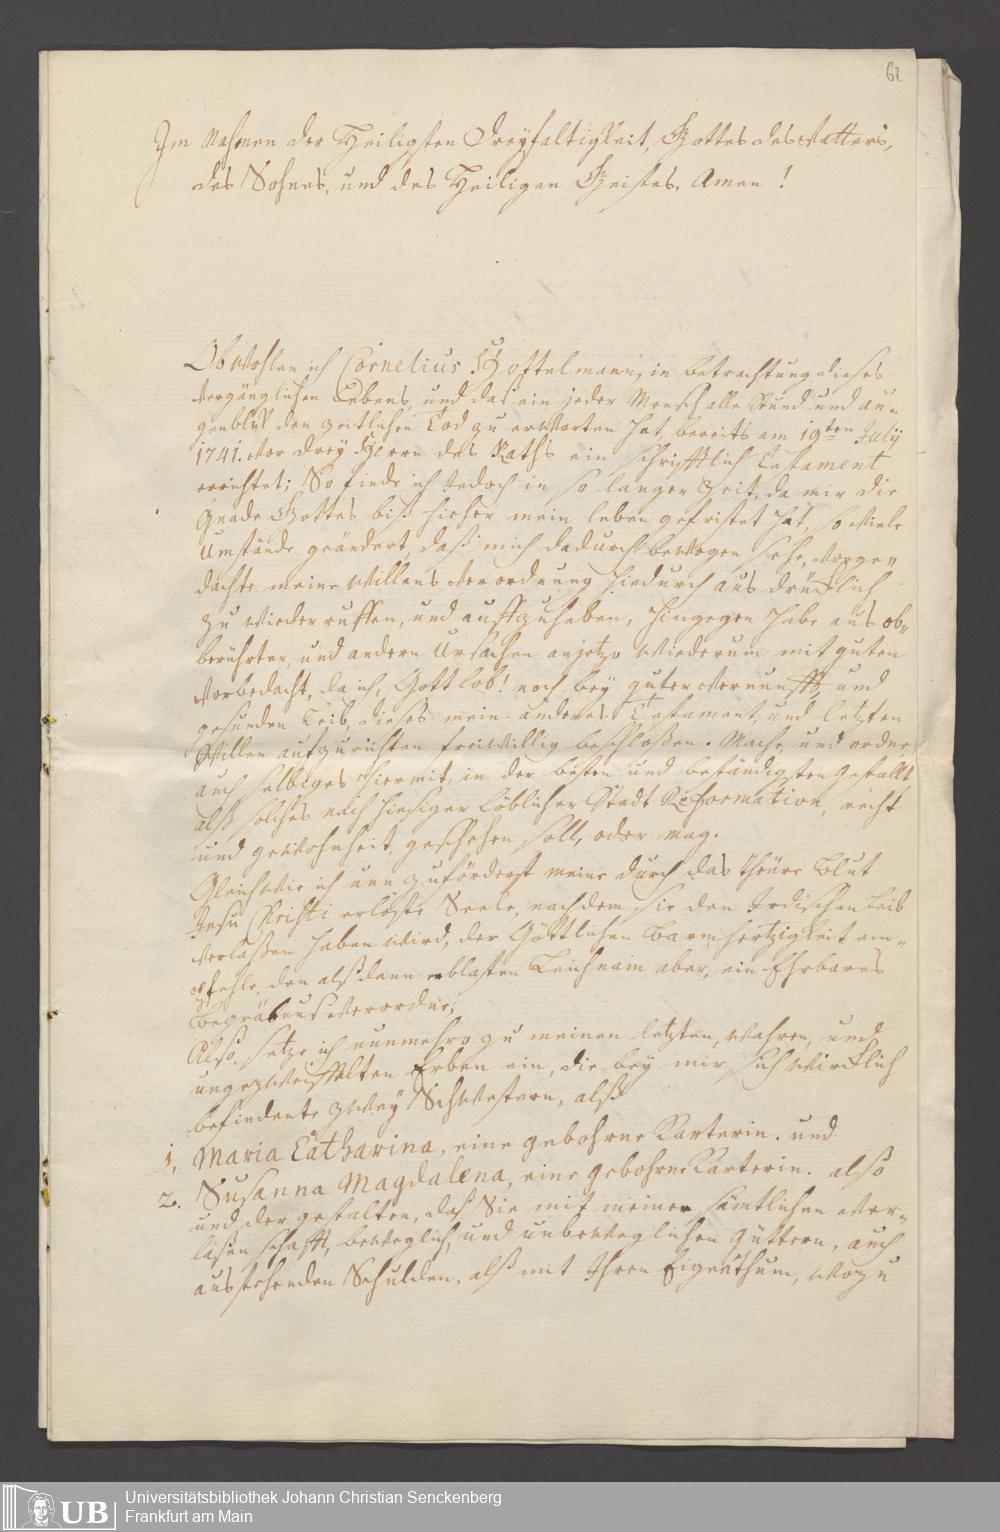 61
Im Nahmen der Heiligsten Dreyfaltigkeit, Gottes des Vatters,
des Sohnes, und des Heiligen Geistes, Amen!
Obwohlen ich Cornelius Hottelmann, in betrachtung dieses
vergänglichen Lebens, und daß ein jeder Mensch alle Stund und au-
genblick den zeitlichen Tod zu erwarten hat, bereits am 19ten July
1741. vor drey Herrn des Raths ein schrifftlich Testament
errichtet; So finde ich jedoch in so langer Zeit, da mir die
Gnade Gottes biß hieher mein leben gefristet hat, so viele
Umstände geändert, daß mich dadurch bewogen sehe, vorge-
dachte meine Willens verordnung hiedurch ausdrücklich
zu wiederruffen, und auffzuheben, hingegen habe aus ob-
berührten, und andern Ursachen anjetzo wiederum mit guten
Vorbedacht, da ich, Gottlob! noch bey guter Vernunfft, und
gesunden Leib, dieses mein anderes Testament, und letzten
Willen aufzurichten freiwillig beschloßen. Mache, und ordne
auch selbiges hiermit, in der besten und beständigsten gestallt
alß solches nach hiesiger Löblicher Stadt Reformation, recht
und gewohnheit, geschehen soll, oder mag.
Gleichwie ich nun zuförderst meine durch das theure Blut
Jesu Christi erlöste Seele, nachdem sie den Irdischen Leib
verlaßen haben wird, der Göttlichen Barmhertzigkeit em-
pfehle, den alßdann erblasten Leichnam aber, ein Ehrbares
Begräbnus verordne;
Also setze ich nunmehro zu meinen letzten, wahren, und
ungezweiffelten Erben ein, die bey mir sich würcklich
befindente zwey Schwestern, alß
1, Maria Catharina, eine gebohrne Karterin. und
2. Susanna Magdalena, eine gebohrne Karterin. also
und der gestalten, daß Sie mit meiner sämtlichen Ver-
laßenschafft, beweglich, und unbeweglichen Güttern, auch
ausstehenden Schulden, alß mit Ihren Eigenthum, wozu
UB
Universitätsbibliothek Johann Christian Senckenberg
Frankfurt am Main